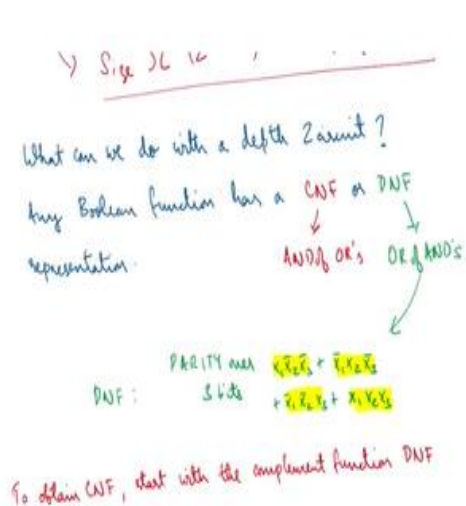 What can we do with a depth 2 circuit?
Any Boolean function has a CNF or DNF
representation. AND of OR's OR of AND's
PARITY over x₁x̄₂x̄₃ + x̄₁x₂x̄₃
DNF: 3 bits + x̄₁x̄₂x₃ + x₁x₂x₃
To obtain CNF, start with the complement function DNF